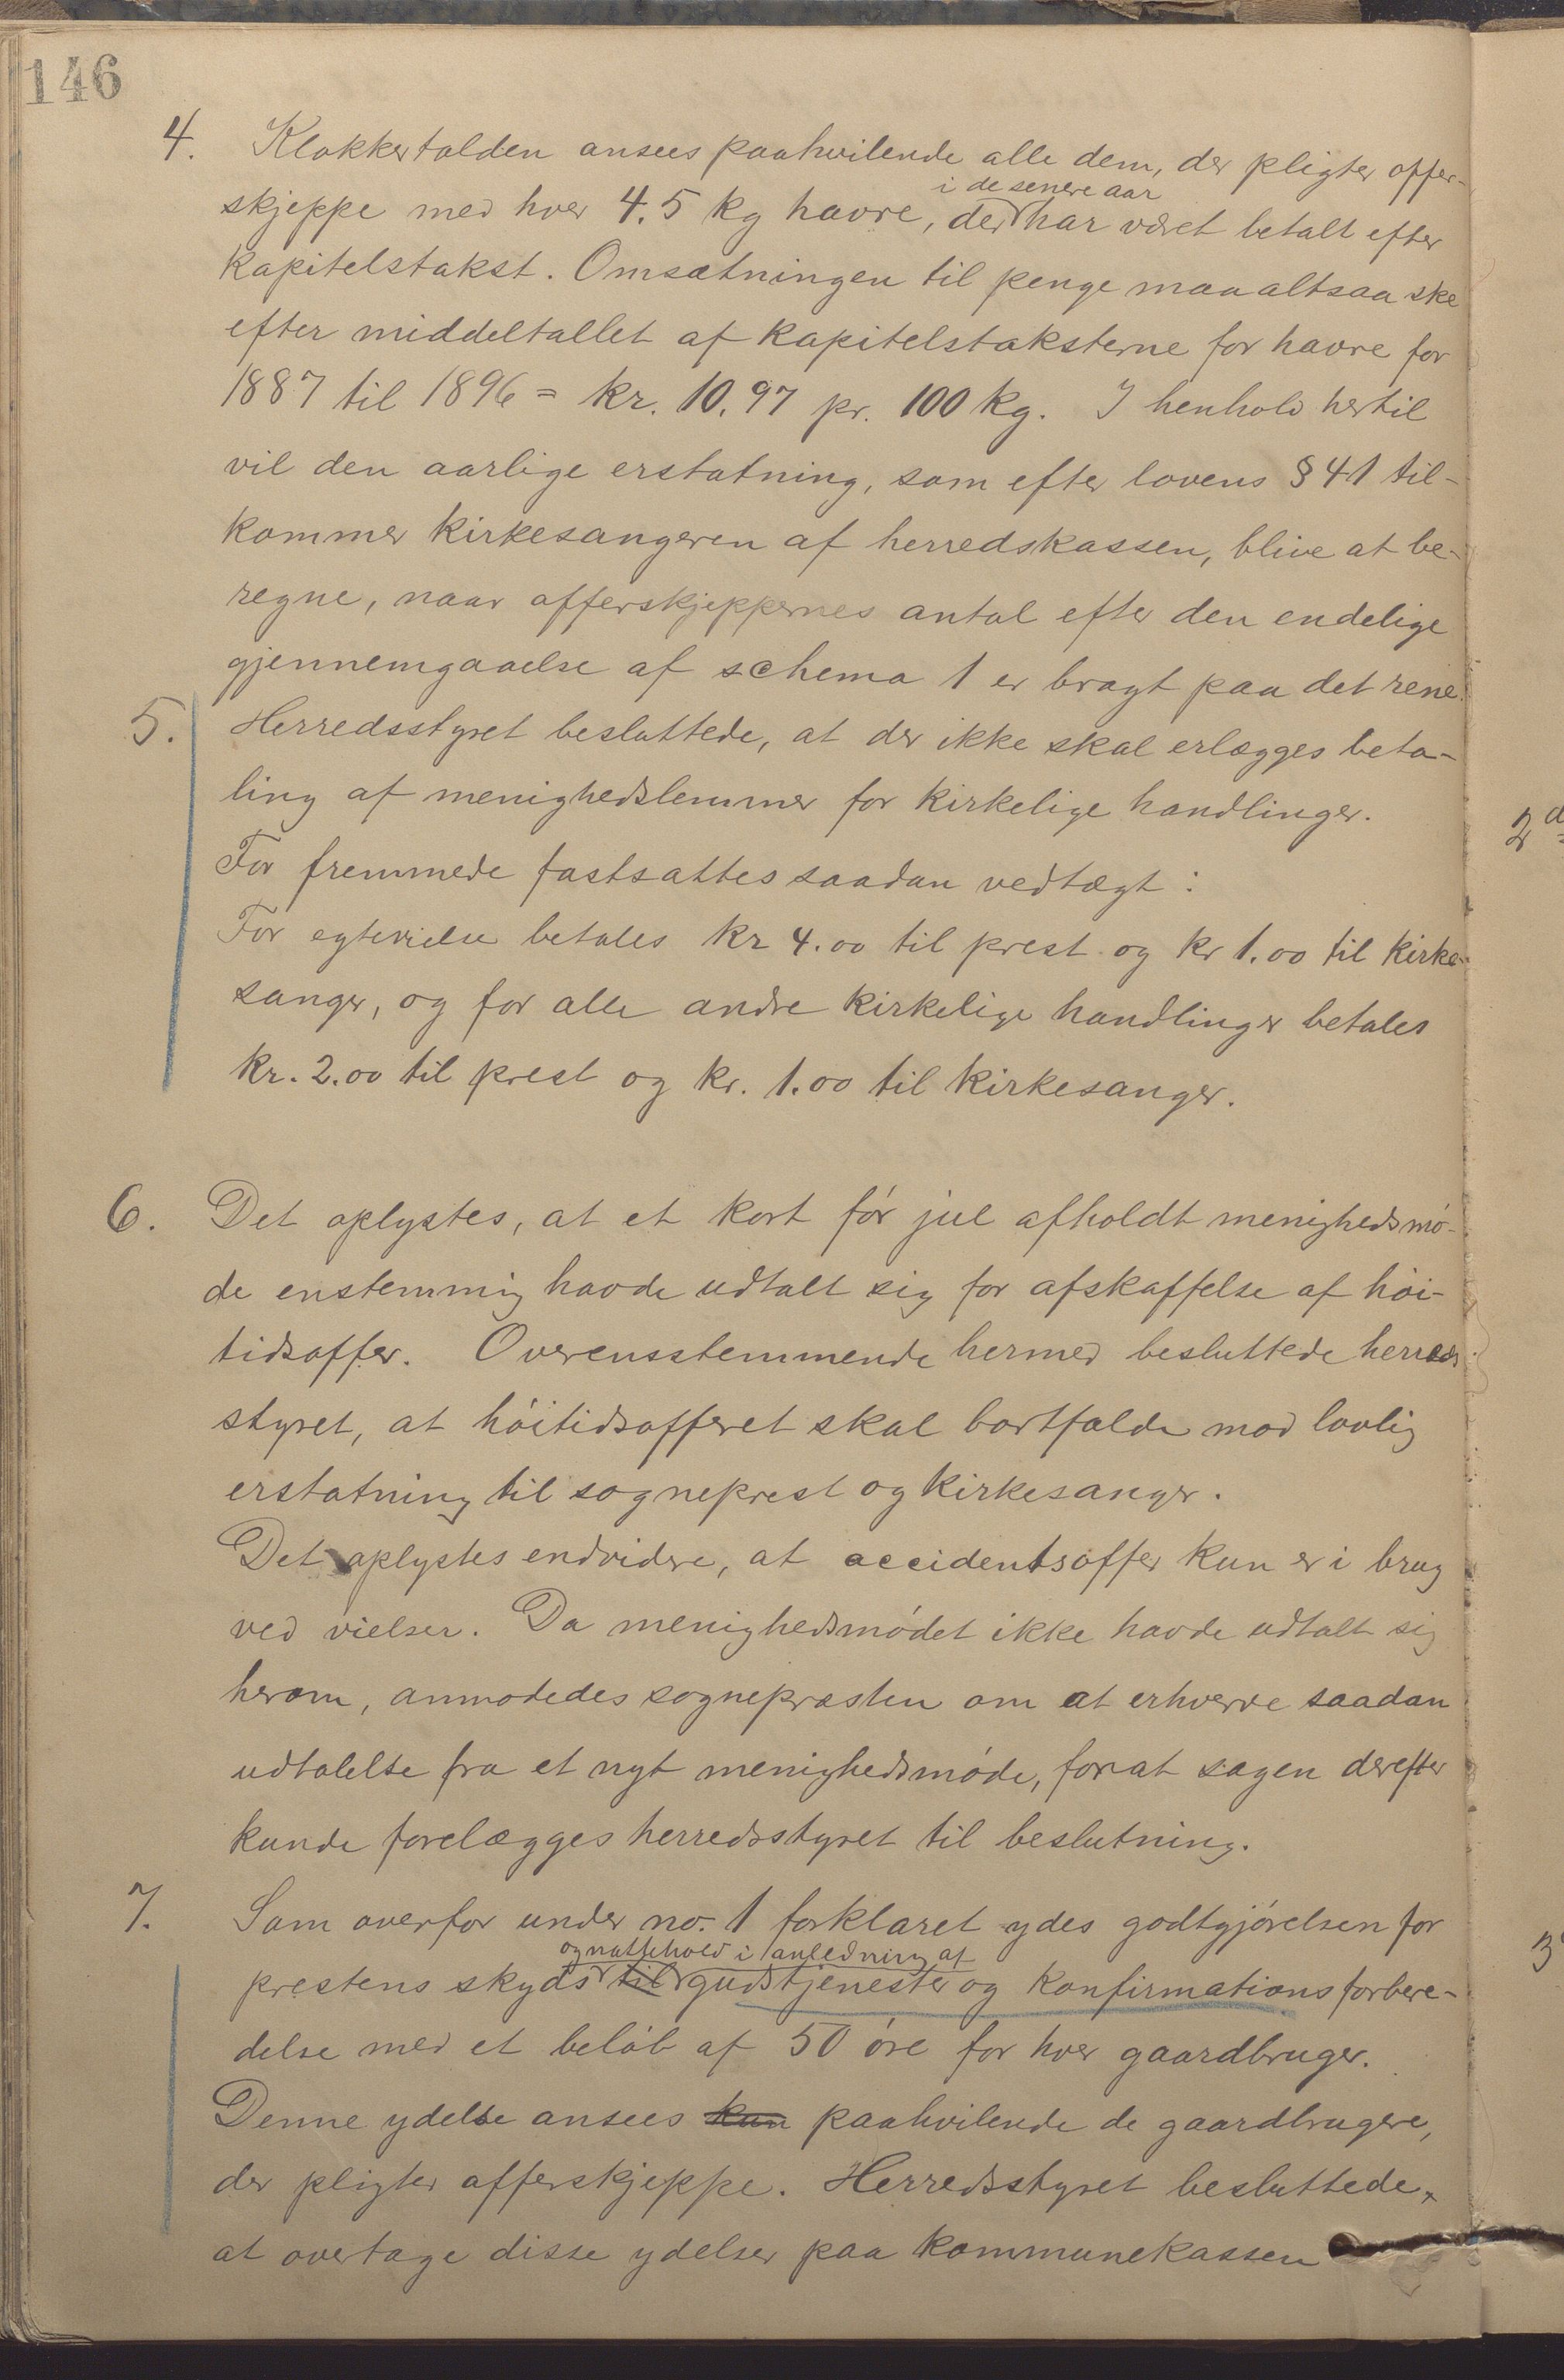 146
4. Klokkertolden ansees paahvilende alle dem, der pligter offer-
i de senere aar
skjeppe med hver 4.5 kg havre, der har været betalt efter
kapitelstakst. Omsætningen til penge maa altsaa ske
efter middeltallet af kapitelstaksterne for havre for
1887 til 1896 = kr. 10.97 pr. 100 kg. I henhold hertil
vil den aarlige erstatning, som efter lovens § 41 til-
kommer kirkesangeren af herredskassen, blive at be-
regne, naar offerskjeppernes antal efter den endelige
gjennemgaaelse af schema 1 er bragt paa det rene.
5. Herredsstyret besluttede, at der ikke skal erlægges beta-
ling af menighedslemmer for kirkelige handlinger.
For fremmede fastsattes saadan vedtægt:
For egtevielse betales kr 4.00 til prest og kr 1.00 til kirke-
sanger, og for alle andre kirkelige handlinger betales
kr. 2.00 til prest og kr. 1.00 til kirkesanger.
6. Det oplystes, at et kort før jul afholdt menighedsmø-
de enstemmig havde udtalt sig for afskaffelse af høi-
tidsoffer. Overensstemmende hermed besluttede herreds
styret, at høitidsofferet skal bortfalde mod lovlig
erstatning til sogneprest og kirkesanger.
Det oplystes endvidere, at accidentsoffer kun er i brug
ved vielser. Da menighedsmødet ikke havde udtalt sig
herom, anmodedes sognepræsten om at erhverve saadan
udtalelse fra et nyt menighedsmøde, forat sagen derefter
kunde forelægges herredsstyret til beslutning.
7. Som ovenfor under no. 1 forklaret ydes godtgjørelsen for
og nattehold i anledning af
prestens skyds til gudstjenester og konfirmationsforbere-
delse med et beløb af 50 øre for hver gaardbruger.
Denne ydelse ansees kun paahvilende de gaardbrugere,
der pligter offerskjeppe. Herredsstyret besluttede,
at overtage disse ydelser paa kommunekassen
2d
3